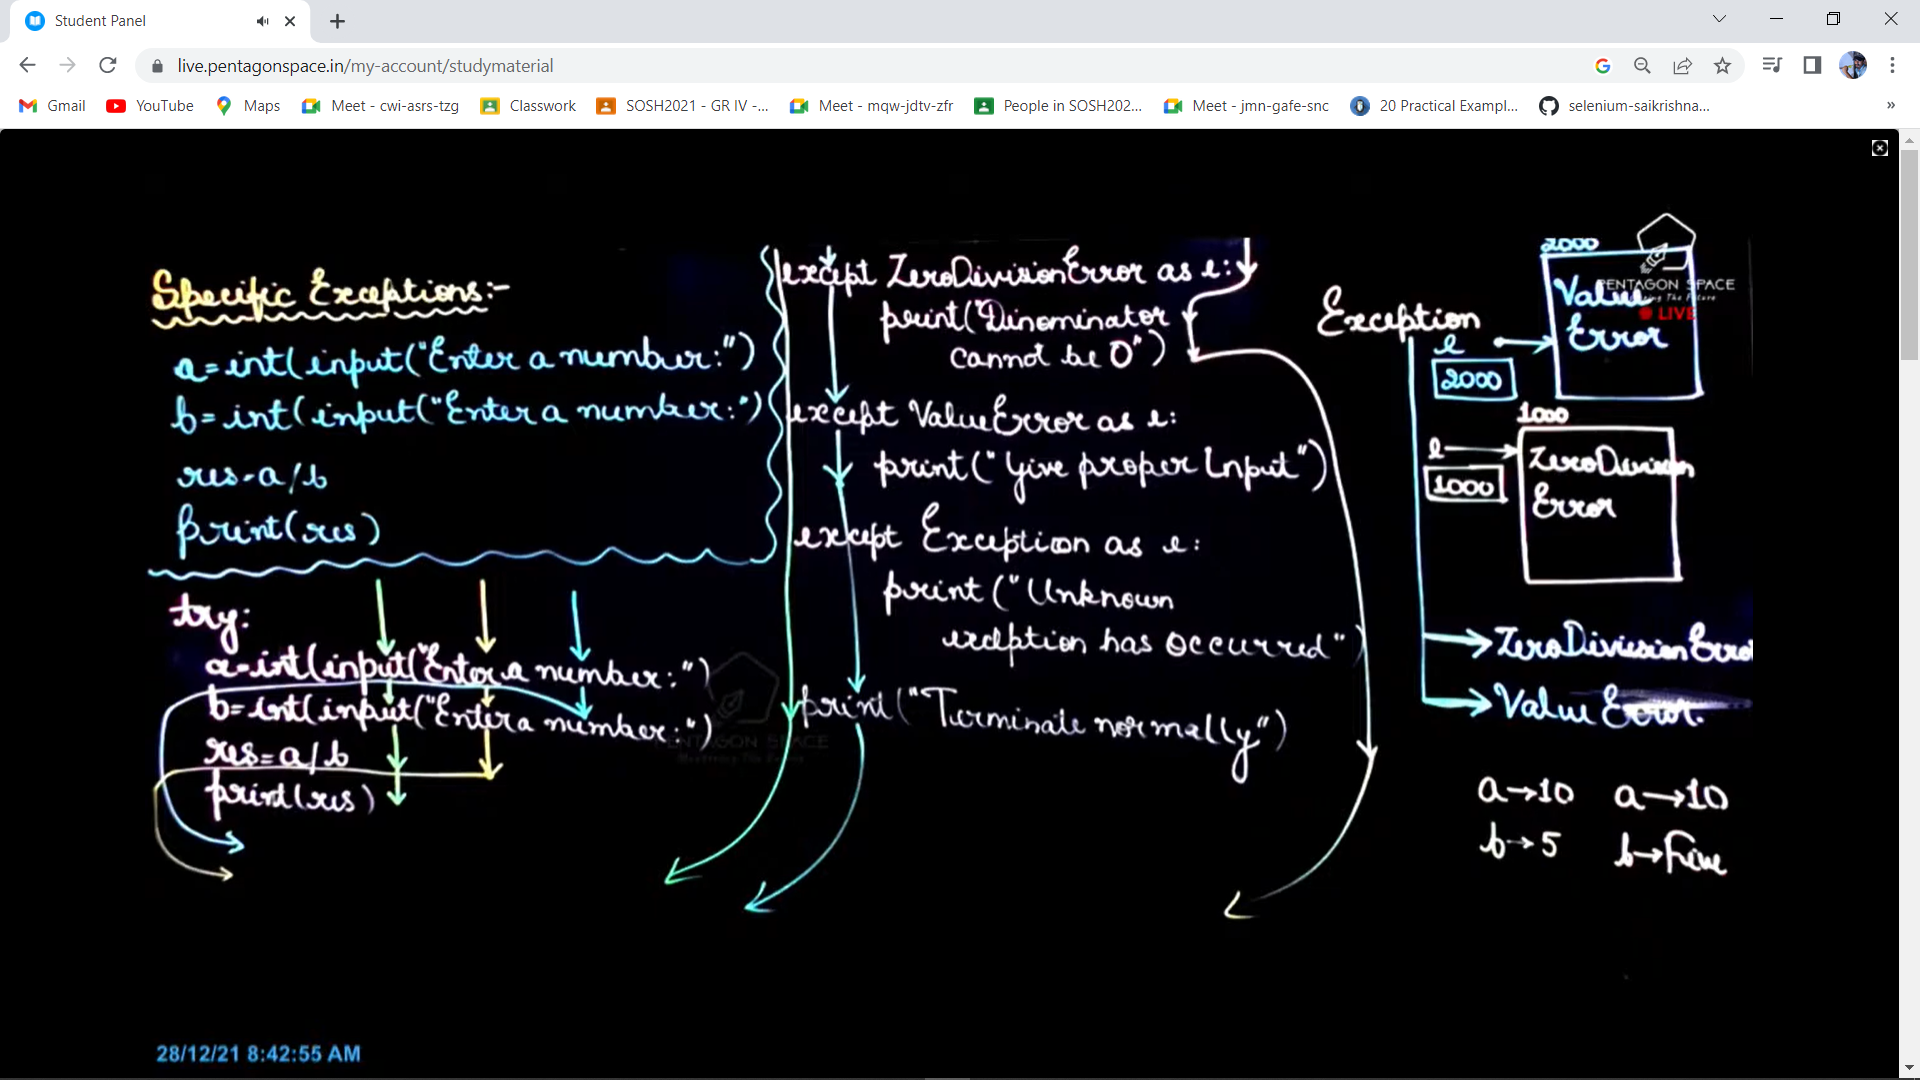 Student Panel
live.pentagonspace.in/my-account/studymaterial
Gmail
YouTube
Maps
Meet - cwi-asrs-tzg
Classwork
SOSH2021 - GR IV -...
Meet - mqw-jdtv-zfr
People in SOSH202...
Meet - jmn-gafe-snc
20 Practical Exampl...
selenium-saikrishna...
»
Specific Exceptions:-
a=int(input("Enter a number:")
b=int(input("Enter a number:")
res=a/b
print(res)
try:
a=int(input("Enter a number:")
b=int(input("Enter a number:")
res=a/b
print(res)
except ZeroDivisionError as e:
print("Dinominator
cannot be 0")
except ValueError as e:
print("Give proper Input")
except Exception as e:
print("Unknown
exception has occurred")
print("Terminate normally")
PENTAGON SPACE
Mastering The Future
Exception
2000
Value
Error
PENTAGON SPACE
LIVE
e
2000
1000
e
1000
ZeroDivision
Error
ZeroDivisionErro
ValueError.
a→10 a→10
b→5 b→Five
28/12/21 8:42:55 AM